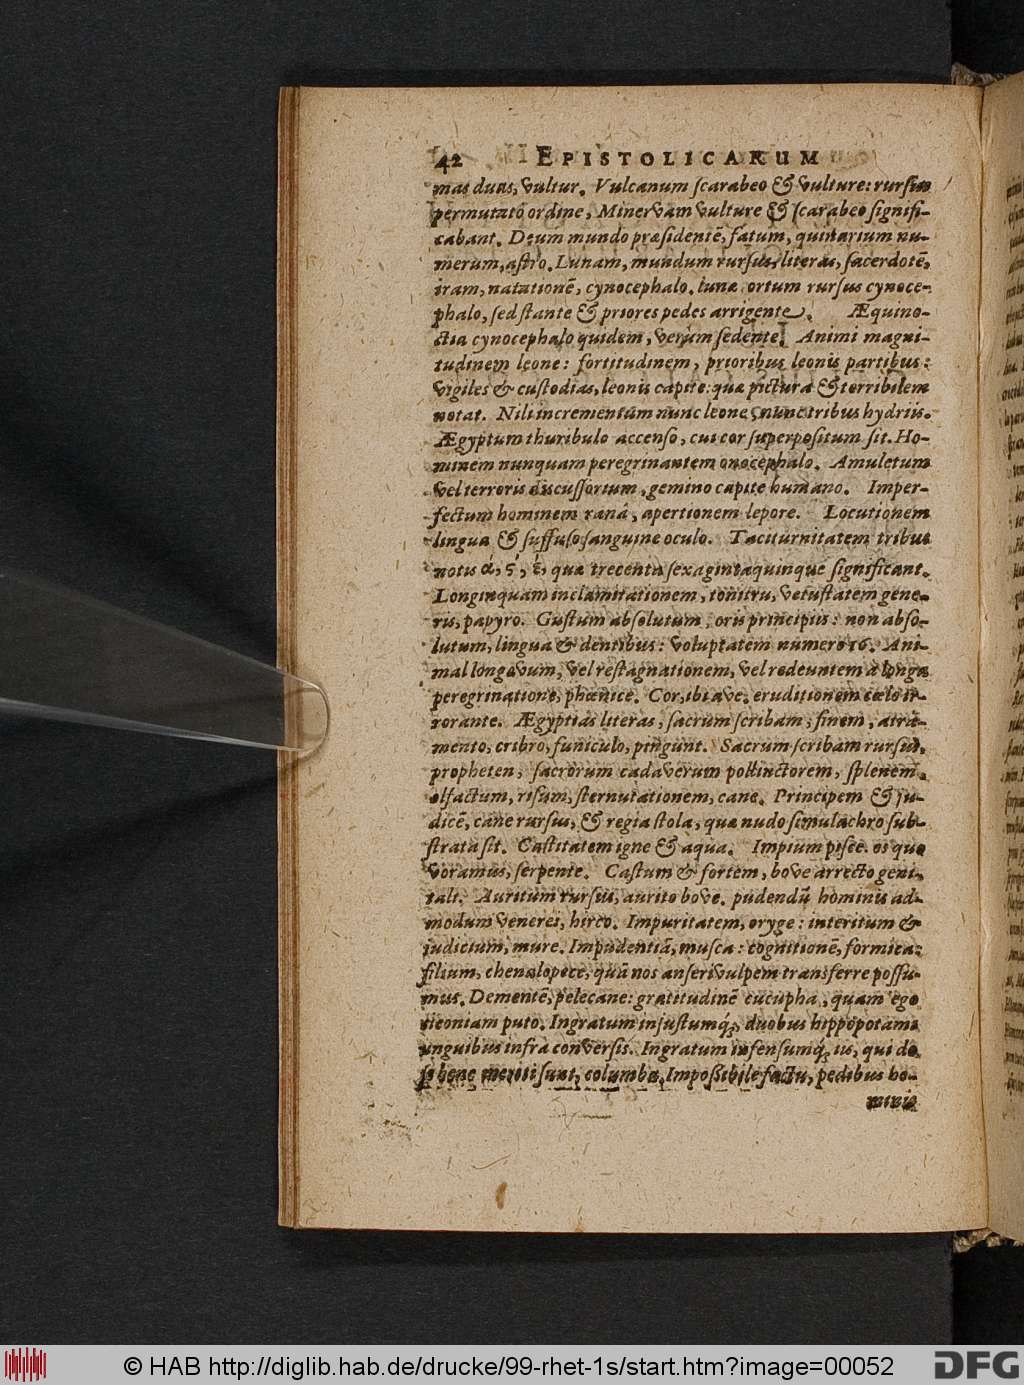 42 EPISTOLICARUM
mas duas, vultur. Vulcanum scarabeo & vulture: rursus
permutato ordine, Minervam vulture & scarabeo signifi-
cabant. Deum mundo præsidentē, fatum, quinarium nu-
merum, astro. Lunam, mundum rursus, literas, sacerdotē,
iram, natationē, cynocephalo. Lunæ ortum rursus cynoce-
phalo, sed stante & priores pedes arrigente. Æquino-
ctia cynocephalo quidem, verùm sedente. Animi magni-
tudinem leone: fortitudinem, prioribus leonis partibus:
vigiles & custodias, leonis capite: quæ pictura & terribilem
notat. Nili incrementum nunc leone, nunc tribus hydriis.
Ægyptum thuribulo accenso, cui cor superpositum sit. Ho-
minem nunquam peregrinantem onocephalo. Amuletum
vel terroris discussorium, gemino capite humano. Imper-
fectum hominem ranâ, apertionem lepore. Locutionem
lingua & suffuso sanguine oculo. Taciturnitatem tribus
notis quæ trecenta sexagintaquinque significant.
Longinquam inclamitationem, tonitru, vetustatem gene-
ris, papyro. Gustum absolutum, oris principiis: non abso-
lutum, lingua & dentibus: voluptatem numero 16. Ani-
mal longævum, vel restagnationem, vel redeuntem à longa
peregrinatione, phœnice. Cor, ibi ave. eruditionem cœlo ir-
rorante. Ægyptias literas, sacrum scribam, finem, atra-
mento, cribro, funiculo, pingunt. Sacrum scribam rursus,
propheten, sacrorum cadaverum pollinctorem, splenem,
olfactum, risum, sternutationem, cane. Principem & ju-
dicē, cane rursus, & regia stola, quæ nudo simulachro sub-
strata sit. Castitatem igne & aqua. Impium pisce. os quo
voramus, serpente. Castum & fortem, bove arrecto geni-
tali. Auritum rursus, aurito bove. pudendū hominis ad-
modum venerei, hirco. Impuritatem, oryge: interitum &
judicium, mure. Impudentiā, musca: cognitionē, formica:
filium, chenalopece, quā nos anserivulpem transferre possu-
mus. Dementē, pelecane: gratitudinē cucupha, quam ego
ciconiam puto. Ingratum injustumq́;, duobus hippopotami
unguibus infrà conversis. Ingratum infensumq́; iis, qui de
se bene meriti sunt, columba. Impoßibile factu, pedibus ho-
minis
© HAB http://diglib.hab.de/drucke/99-rhet-1s/start.htm?image=00052 DFG